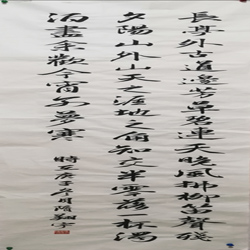 長亭外古道邊芳草碧連天晚風拂柳笛聲殘
夕陽山外山天之涯地之角知交半零落一杯濁
酒盡余歡今宵別夢寒
庚子 月